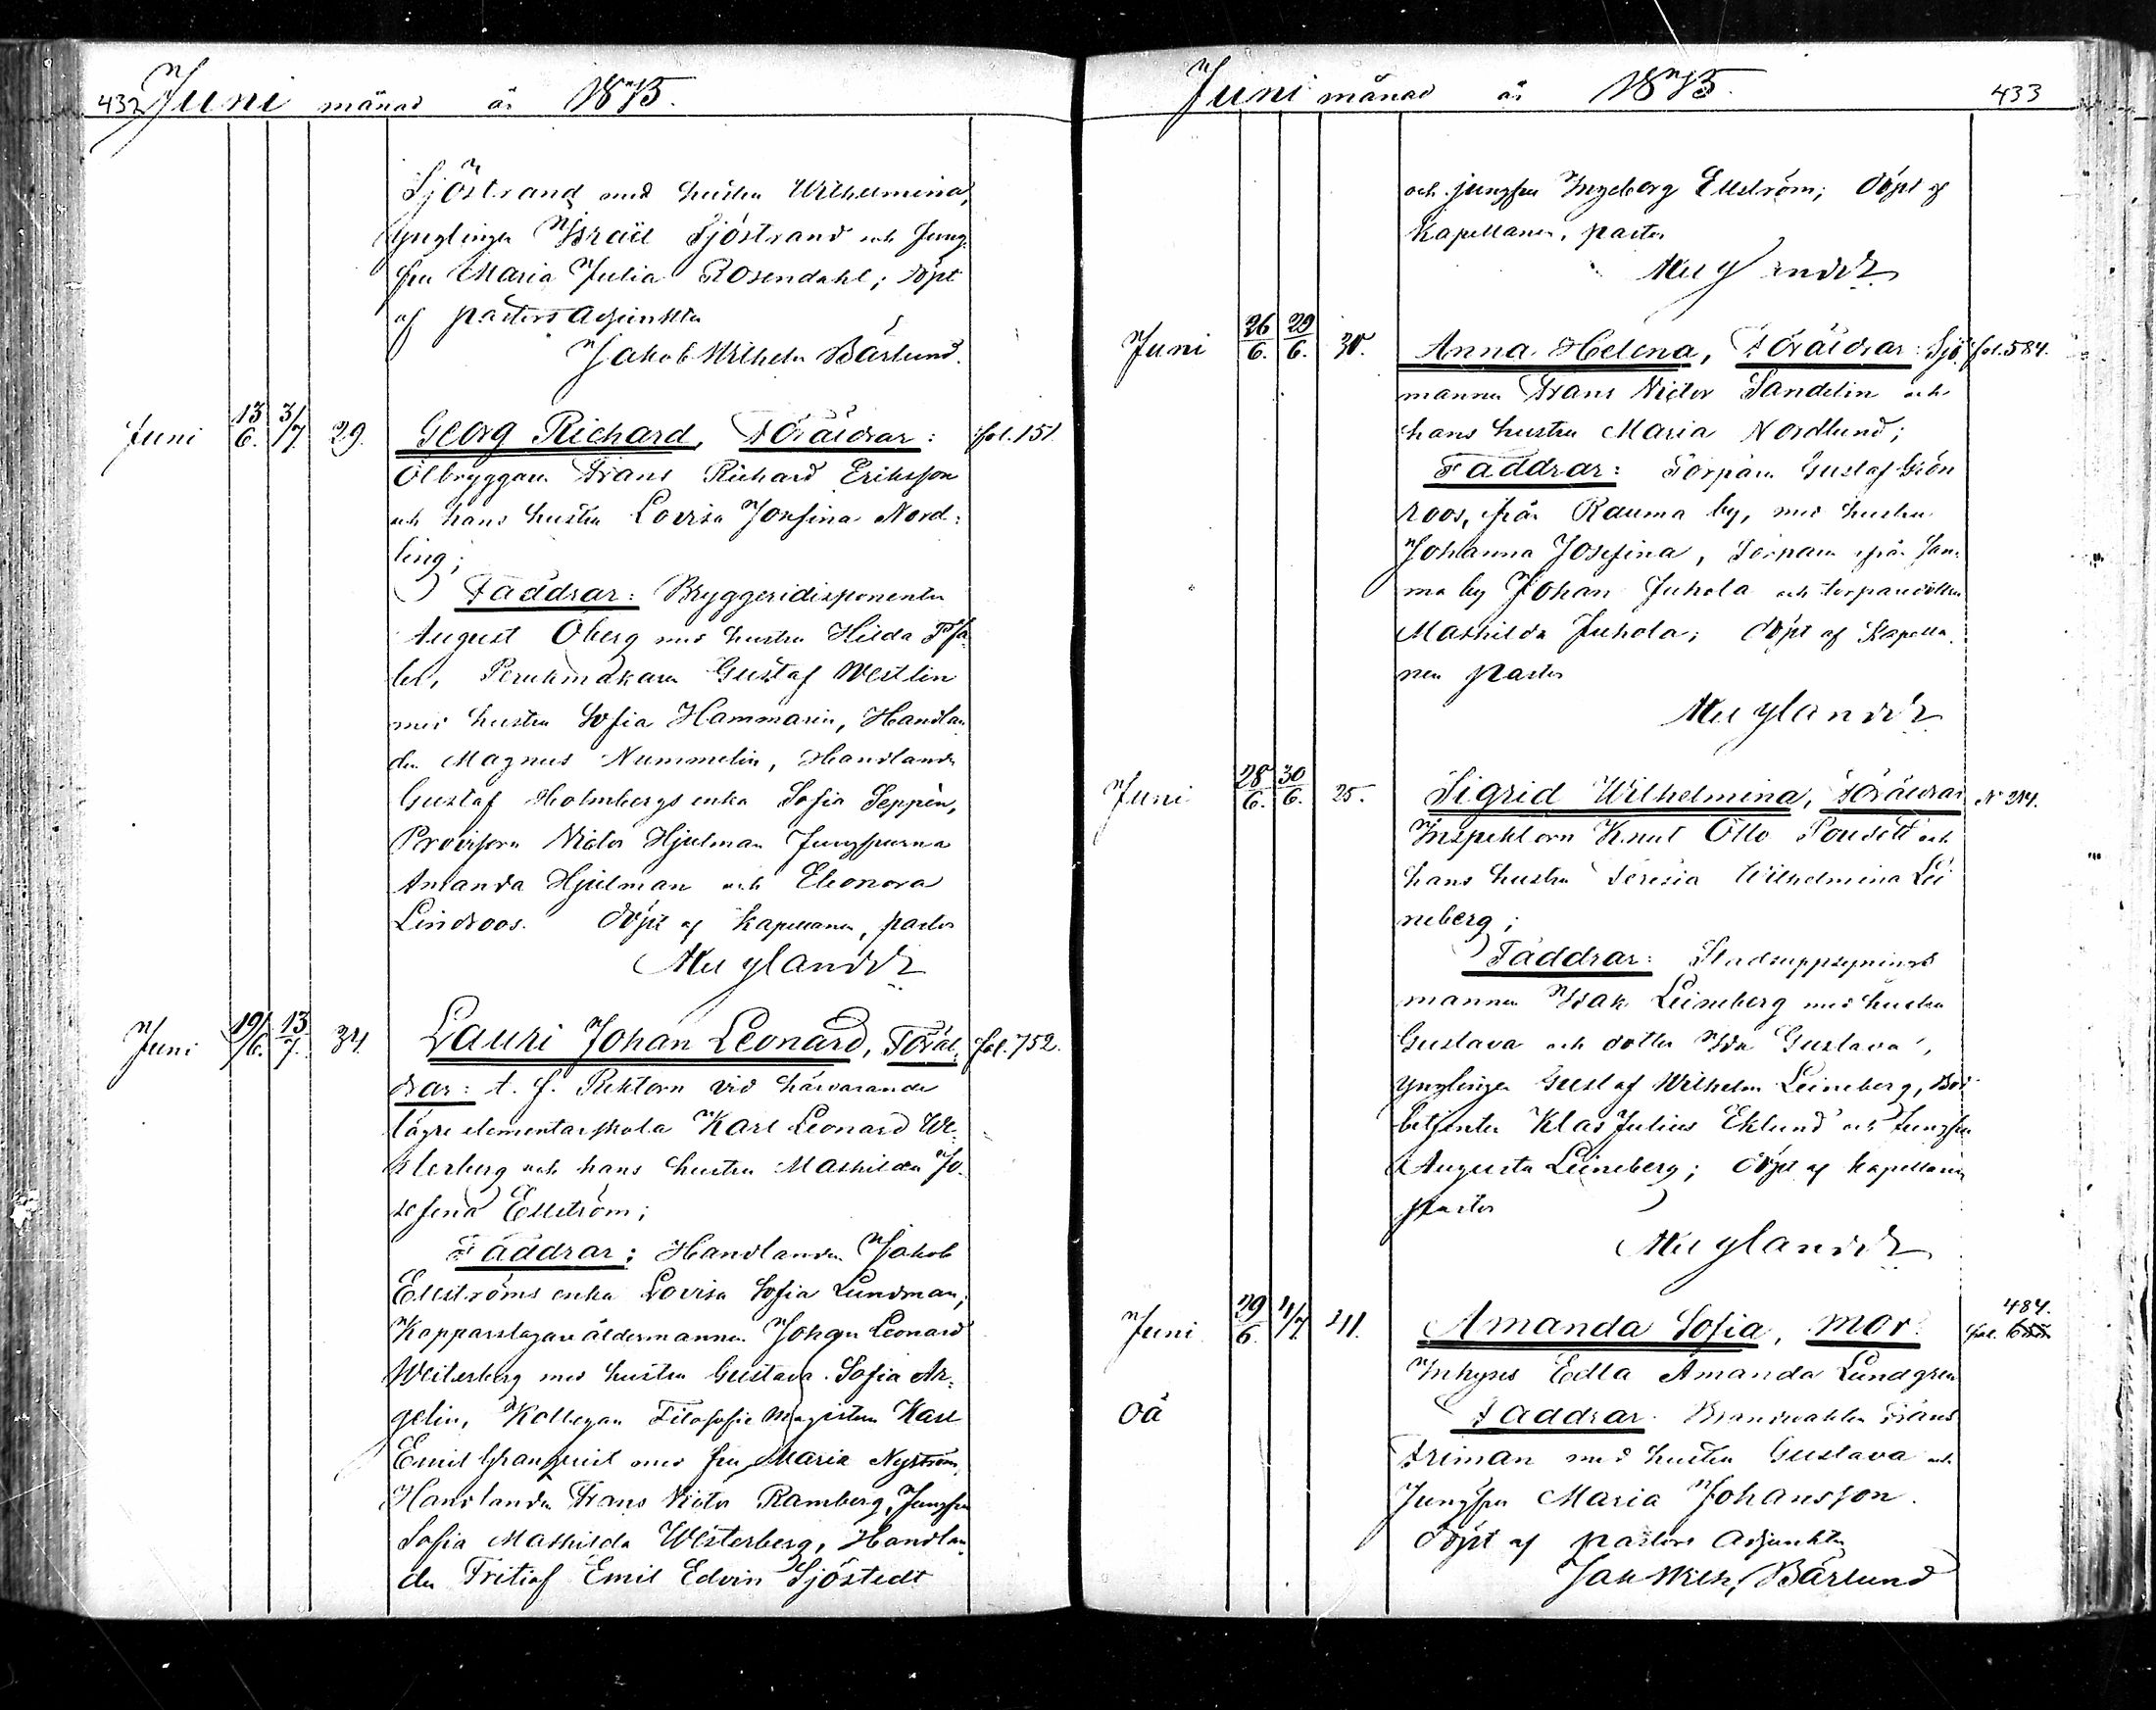 432 Juni månad år 1875.
Sjöstrand med hustru Wilhelmina,
Ynglingen Israel Sjöstrand och Jung-
fru Maria Julia Rosendahl; döpt
af pastors Adjunkten
Jakob Wilhelm Bärlund.
Juni 13/6. 3/7 29. Georg Richard, Föräldrar: fol. 151
Ölbryggaren Frans Richard Eriksson
och hans hustru Lovisa Josefina Nord-
ling;
Faddrar: Bryggeridisponenten
August Öberg med hustru Hilda
Perukmakaren Gustaf Westlin
med hustru Sofia Hammarin, Handlan
den Magnus Nummelin, Handlanden
Gustaf Holmbergs enka Sofia Seppén,
Provisorn Victor Hjelman Jungfrurna
Amanda Hjelman och Eleonora
Lindroos. döpt af Kapellanen, pastor
Juni 19/6. 13/7. 34. Lauri Johan Leonard, Föräl- fol. 752.
drar: t. f. Rektorn vid härvarande
lägre elementarskola Karl Leonard We-
sterberg och hans hustru Mathilda Jo-
sefina Ellström;
Faddrar: Handlanden Jakob
Ellströms enka Lovisa Sofia Lundman,
Kopparslagare åldermannen Johan Leonard
Westerberg med hustru Gustava Sofia Ar-
gelin, Kollegan Filosofie Magistern Karl
Emil Granqvist med fru Maria Nyström,
Handlanden Frans Victor Ramberg, Jungfru
Sofia Mathilda Westerberg, Handlan
den Fritiof Emil Edvin Sjöstedt
Juni månad år 1875. 433
och jungfru Ingeborg Ellström; döpt af
Kapellanen, pastor
Juni 26/6. 29/6. 30. Anna Helena, Föräldrar: Sjö fol. 584.
mannen Frans Victor Sandelin och
hans hustru Maria Nordlund;
Faddrar: Torparen Gustaf Grön
roos, från Rauma by, med hustru
Johanna Josefina, Torparen från sam-
ma by Johan Juhola och torparedottren
Mathilda Juhola; döpt af Kapella
nen pastor
Juni 28/6. 30/6. 25. Sigrid Wilhelmina, Föräldrar N 214.
Inspektorn Knut Otto Pousett och
hans hustru Teresia Wilhelmina Lei
neberg;
Faddrar: Stadsuppsynings
mannen Isak Leineberg med hustru
Gustava och dotter Ida Gustava,
Ynglingen Gustaf Wilhelm Leineberg, Bod
betjenten Klas Julius Eklund och Jungfru
Augusta Leineberg; döpt af kapellanen
pastor
Juni 29/6. 4/7. 41. Amanda Sofia, Mor: 484. fol.
Inhyses Edla Amanda Lundgren
oä Faddrar: Brandvakten Frans
Friman med hustru Gustava och
Jungfru Maria Johansson.
döpt af pastors Adjunkten
Jak Wilh. Bärlund